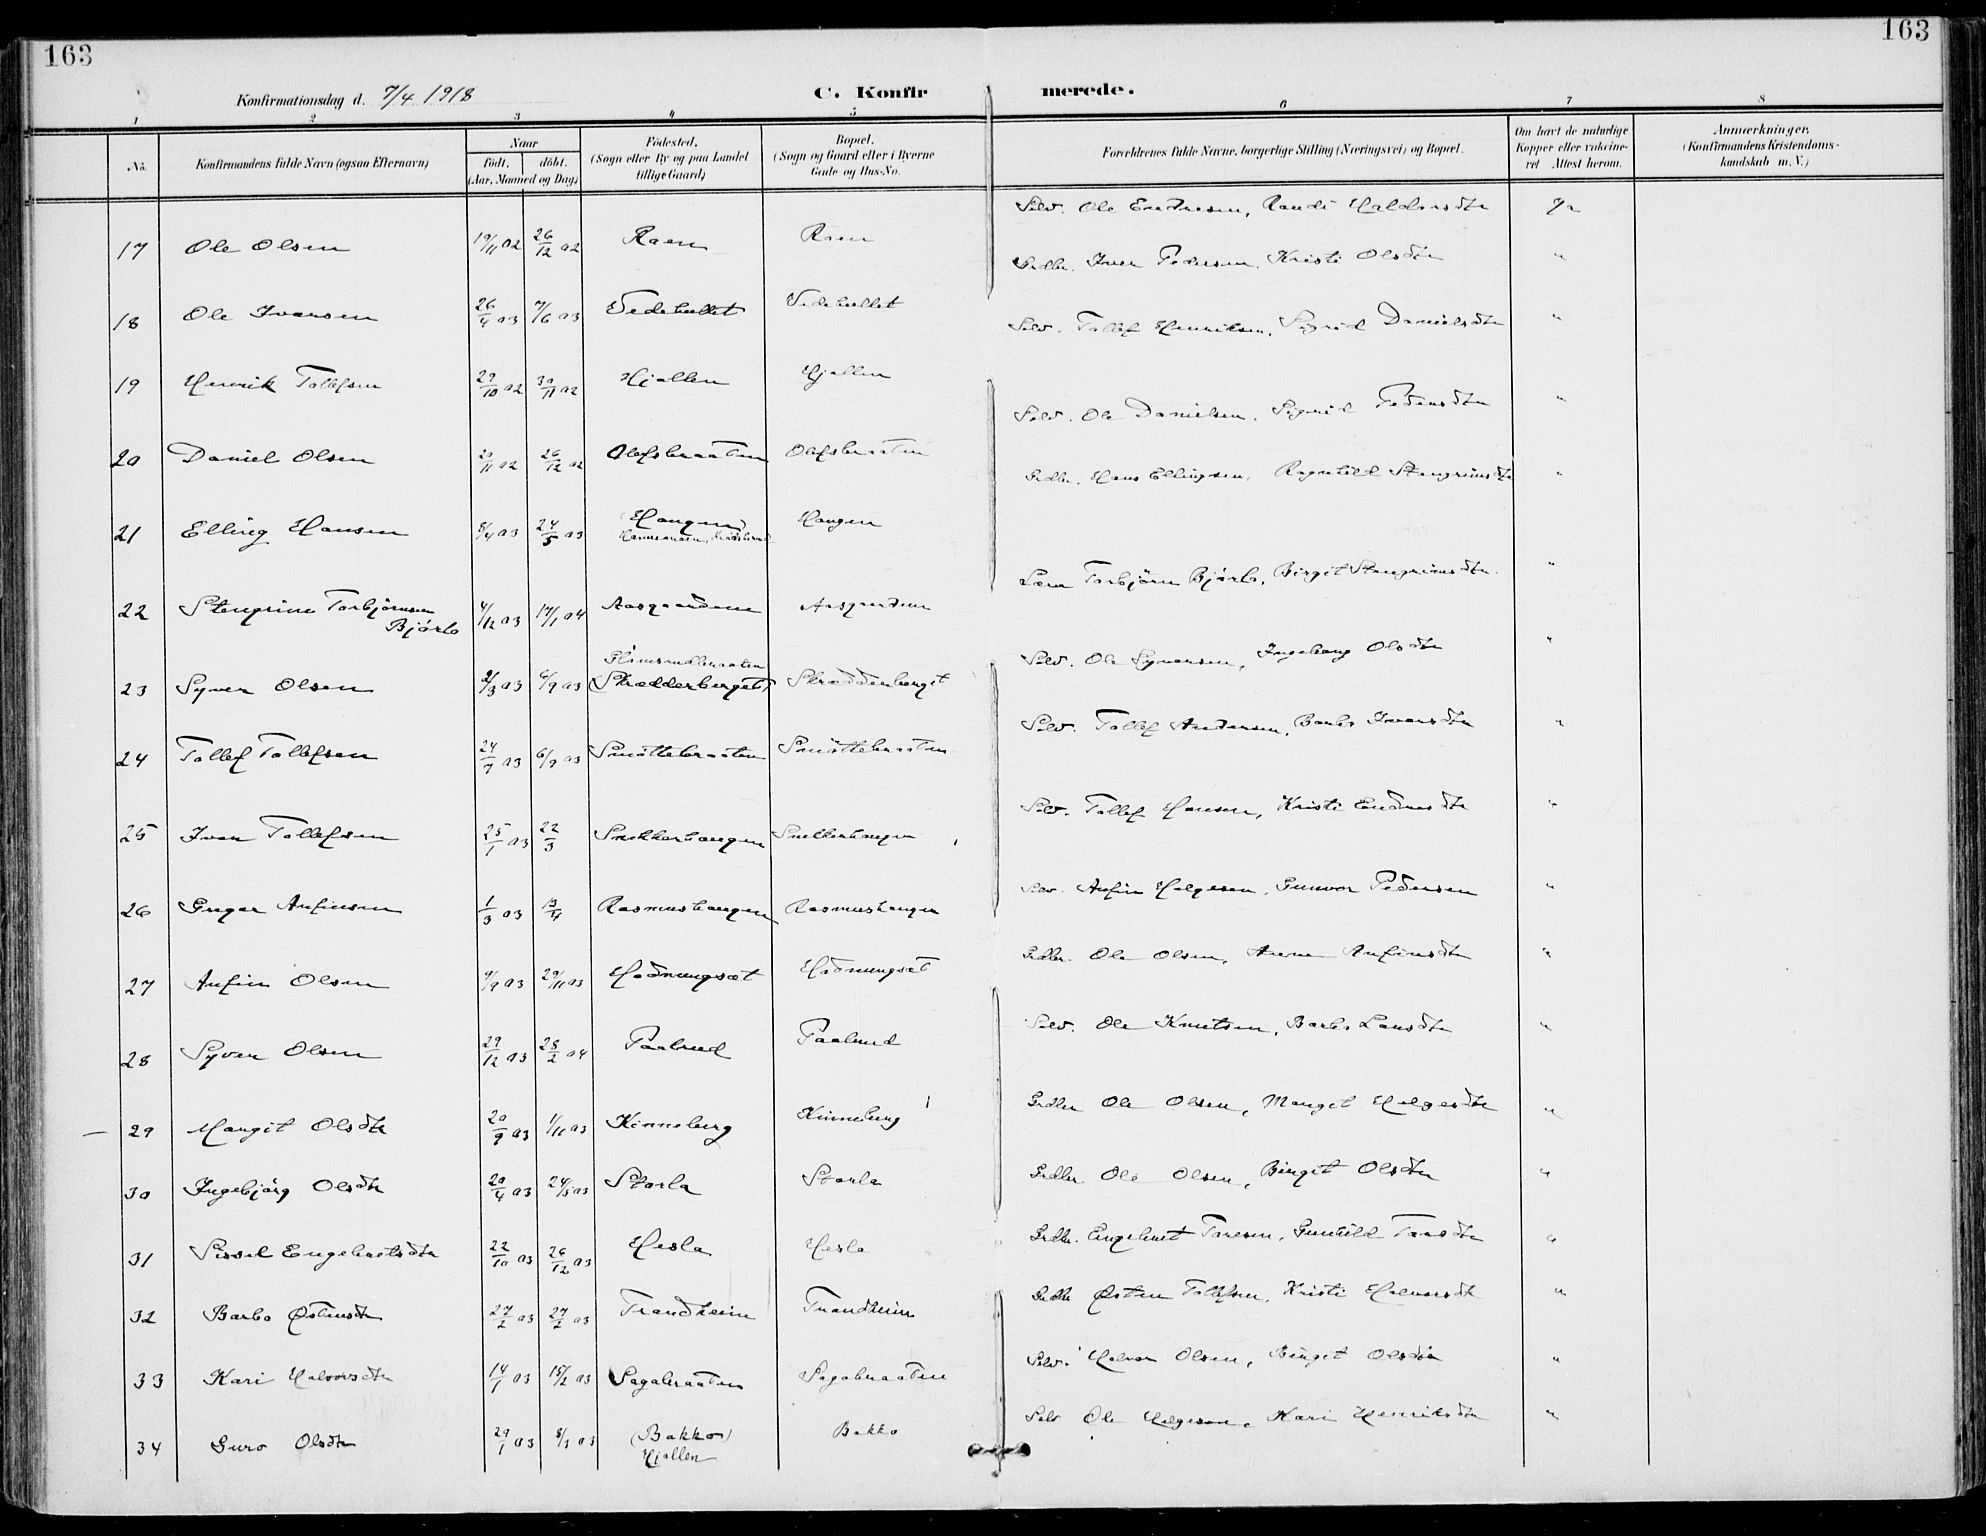 163
163
Konfirmationsdag d. 7/4 1918
C. Konfir merede.
1 2 3 4 5 6 7 8
No.
Konfirmandens fulde Navn (ogsaa Efternavn)
Naar
födt. döbt.
(Aar, Maaned og Dag)
Födested.
(Sogn eller By og paa Landet
tillige Gaard)
Bopæl.
(Sogn og Gaard eller i Byerne
Gade og Hus-No.
Forældrenes fulde Navne, borgerlige Stilling (Næringsvei) og Bopæl.
Om havt de naturlige
Kopper eller vakcine-
ret Attest herom.
Anmærkninger.
(Konfirmandens Kristendoms-
kundskab m. V.)
17 Ole Olsen 19/11 02 26/12 02 Raen Raen Selv. Ole Endresen, Randi Haldorsdtr Ja
18 Ole Iversen 26/4 03 7/6 03 Vedehullet Vedehullet Grdbr. Iver Pedersen, Kristi Olsdtr "
19 Henrik Tollefsen 29/10 02 30/11 02 Hjallen Hjallen Selv. Tollef Henriksen, Sigrid Danielsdtr "
20 Daniel Olsen 20/11 02 26/12 02 Olefsbraaten Olefsbraaten Selv. Ole Danielsen, Sigrid Pedersdtr "
21 Elling Hansen 8/4 03 24/5 03 (Haugen) Haugen Grdbr. Hans Ellingsen, Ragnhild Stengrimsdtr "
22 Stengrim Torbjörnsen 4/12 03 17/1 04 Aasgaardene Aasgaardene Lærer Torbjörn Björlo, Birgit Stengrimsdtr. "
Björlo
23 Syver Olsen 2/3 03 6/9 03 (Skredderberget) Skreddenberget Selv. Ole Syversen, Ingeborg Olsdtr "
24 Tollef Tollefsen 24/7 03 6/9 03 Smöttebraaten Smöttebraaten Selv. Tollef Andersen, Barbo Iversdtr "
25 Iver Tollefsen 25/1 03 22/3 Snekkerhaugen Snekkerhaugen Selv. Tollef Hansen, Kristi Endresdtr "
26 Greger Anfinsen 1/3 03 13/4 Rasmushaugen Rasmushaugen Selv. Anfin Helgesen, Gunvor Pedersen "
27 Anfin Olsen 9/9 03 29/11 03 Hodnungsæt Hodnungsæt Grdbr. Ole Olsen, Arene Anfinsdtr "
28 Syver Olsen 29/12 03 28/2 04 Paalrud Paalrud Selv. Ole Knutsen, Barbo Larsdtr "
29 Margit Olsdtr 20/9 03 1/11 03 Kinneberg Kinneberg Grdbr Ole Olsen, Margit Helgesdtr "
30 Ingebjörg Olsdtr 20/4 03 24/5 03 Storla Storla Grdbr. Ole Olsen, Birgit Olsdtr "
31 Sissel Engebretsdtr 22/10 03 26/12 03 Hesla Hesla Grdbr. Engebret Toresen, Gunhild Torsdtr "
32 Barbo Østensdtr 27/2 03 27/2 03 Trondheim Trondheim Grdbr Østen Tollefsen, Kristi Halvorsdtr "
33 Kari Halvorsdtr 14/1 03 15/2 03 Sagabraaten Sagabraaten Selv. Halvor Olsen, Birgit Olsdtr "
34 Guro Olsdtr 29/1 03 8/3 03 (Bakko) Bakko Selv Ole Helgesen, Kari Henriksdtr "
Hjallen